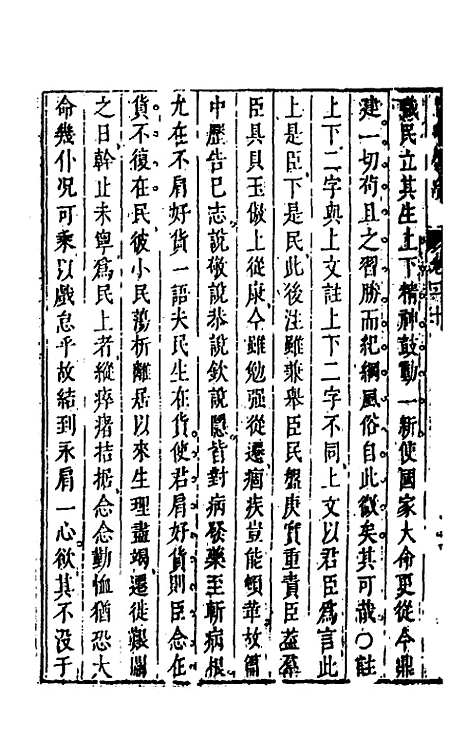 戲民立其生上下精神鼓動一新使國家大命更從今鼎
建一切苟且之習勝而紀綱風俗自此微矣其可哉〇註
上下二字與上文註上下二字不同上文以君臣爲言此
上是臣下是民此後注雖兼舉臣民盤庚實重責臣蓋羣
臣具貝玉倣上從康今雖勉强從遷痼疾豈能頓革故篇
中歷告已志說敬說恭說欽說隱皆對病發藥至斬病根
尤在不肩好貨一語夫民生在貨使君肩好貨則臣念在
貨不復在民彼小民蕩析離居以來生理盡竭遷徙艱關
之日幹止未寧爲民上者縱瘁瘏拮据念念勤恤猶恐大
命幾仆况可乘以戲怠乎故結到永肩一心欲其不没于